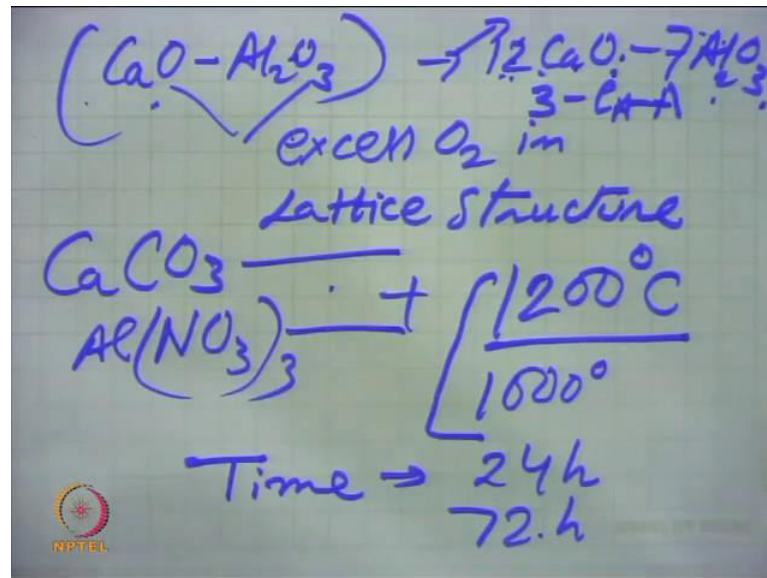 (CaO-Al2O3) → 12CaO-7Al2O3
3-CA-A
excess O2 in
Lattice Structure
CaCO3
Al(NO3)3 + [1200°C
1000°
Time → 24h
72.h
NPTEL